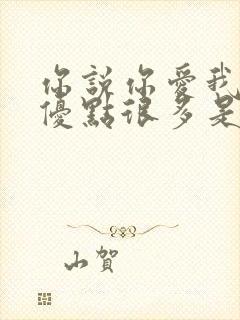 你說你愛我
優點很多是
山賀